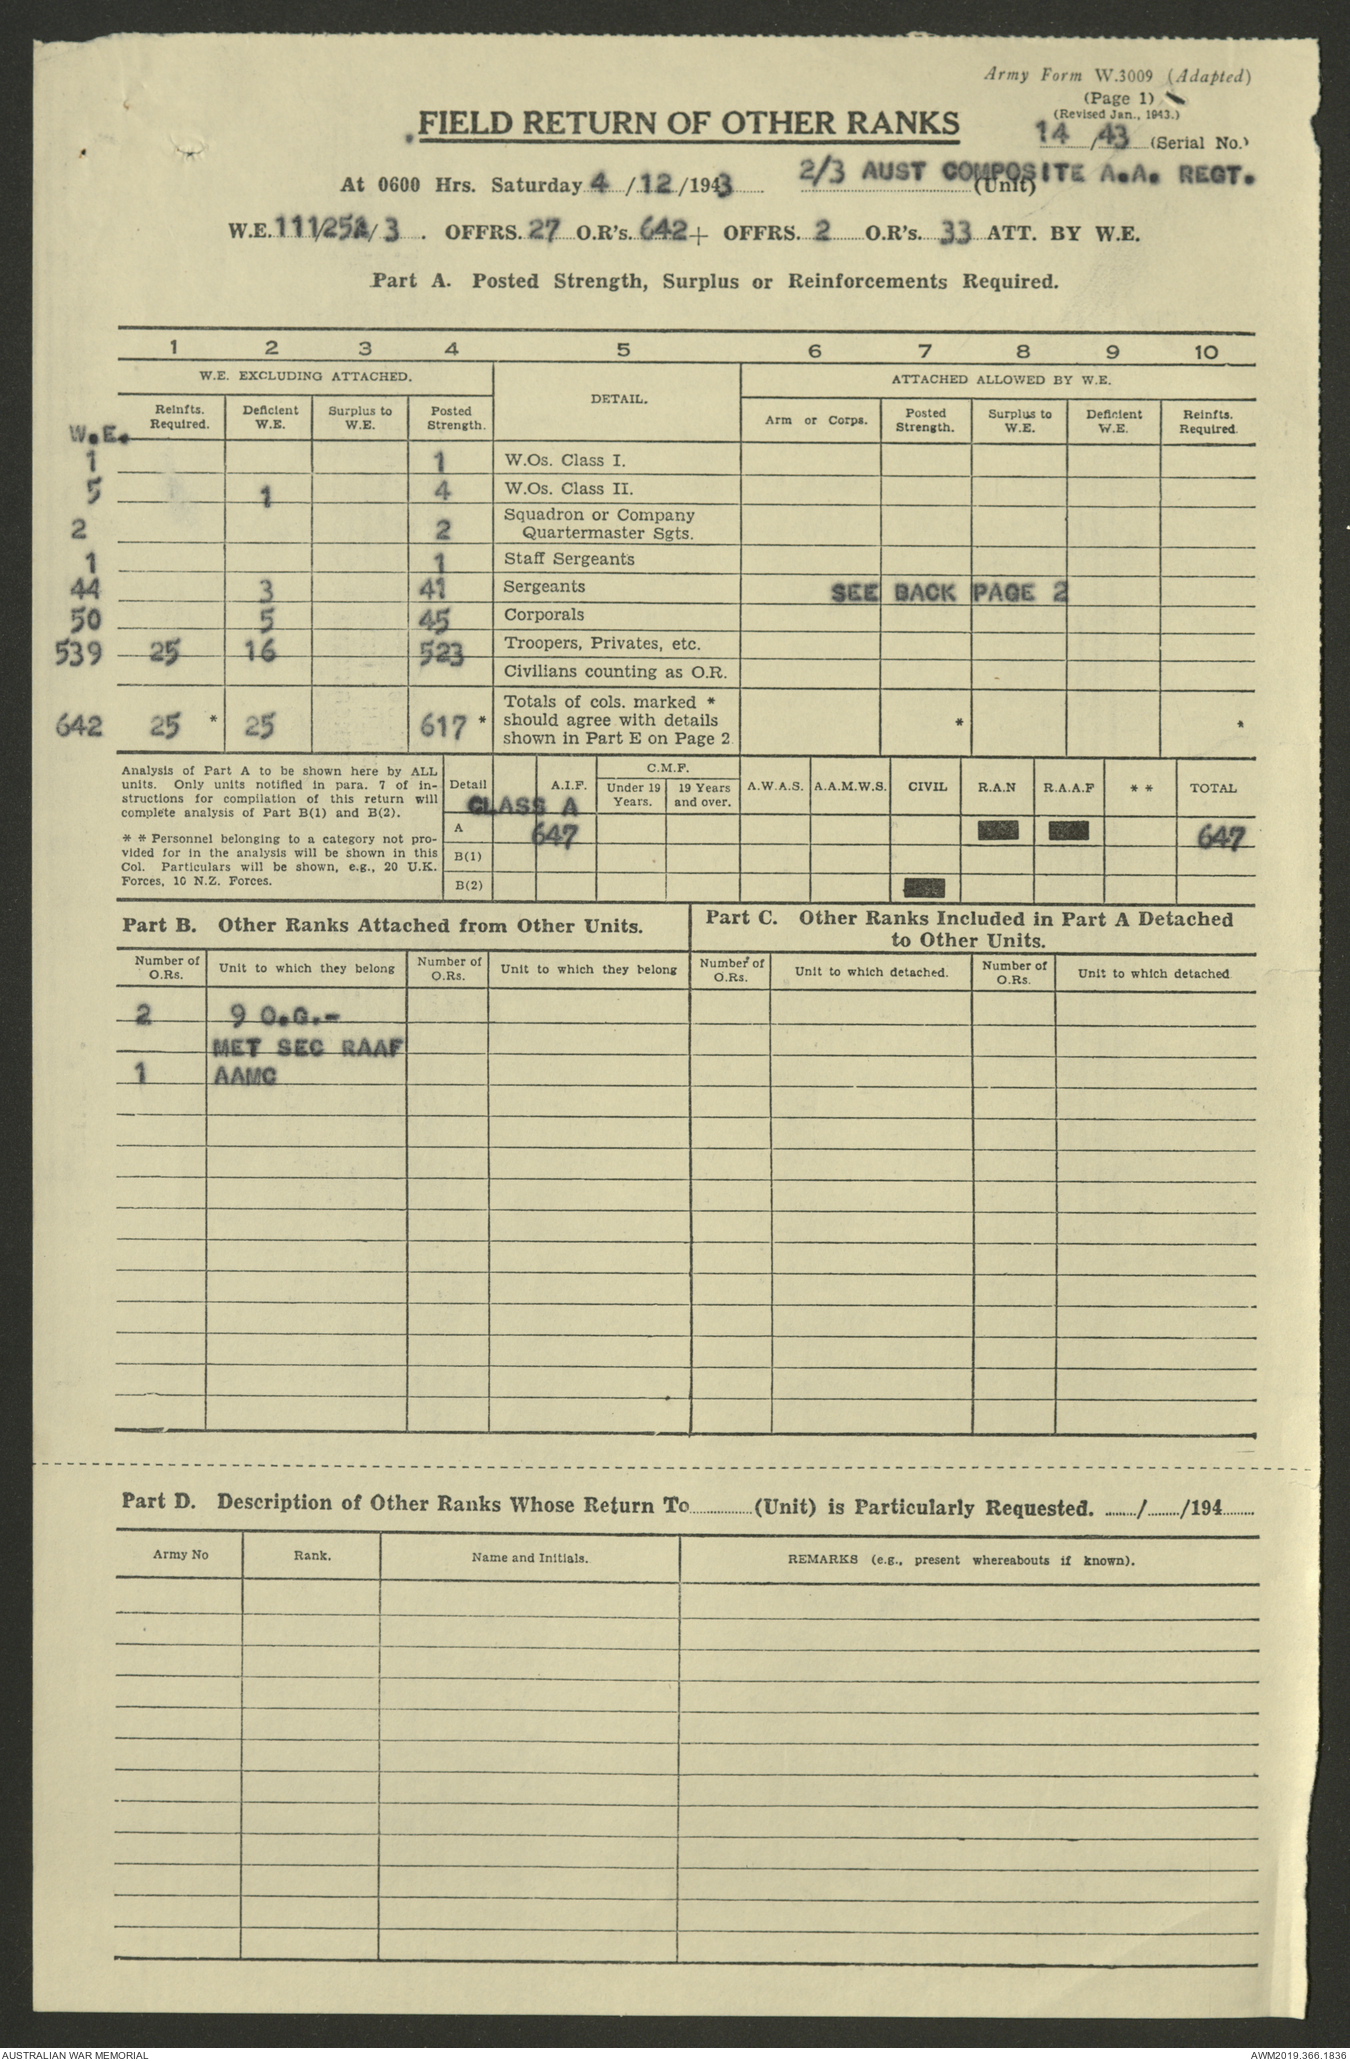 Army Form W.3009 (Adapted)
(Page 1)
(Revised Jan., 1943.)
FIELD RETURN OF OTHER RANKS
14 /43 (Serial No.)
At 0600 Hrs. Saturday 4 /12 /1943 2/3 AUST COMPOSITE A.A. REGT.
(Unit)
W.E. 111/252/3 . OFFRS. 27 O.R's. 642 + OFFRS. 2 O.R's. 33 ATT. BY W.E.
Part A. Posted Strength, Surplus or Reinforcements Required.
1 2 3 4 5 6 7 8 9 10
W.E. EXCLUDING ATTACHED. DETAIL. ATTACHED ALLOWED BY W.E.
W.E. Reinfts. Required. Deficient W.E. Surplus to W.E. Posted Strength. Arm or Corps. Posted Strength. Surplus to W.E. Deficient W.E. Reinfts. Required.
1 1 W.Os. Class I.
5 1 4 W.Os. Class II.
2 2 Squadron or Company Quartermaster Sgts.
1 1 Staff Sergeants
44 3 41 Sergeants SEE BACK PAGE 2
50 5 45 Corporals
539 25 16 523 Troopers, Privates, etc.
Civilians counting as O.R.
642 25 * 25 617 * Totals of cols. marked * should agree with details shown in Part E on Page 2 * *
Analysis of Part A to be shown here by ALL
units. Only units notified in para. 7 of in-
structions for compilation of this return will
complete analysis of Part B(1) and B(2).
* * Personnel belonging to a category not pro-
vided for in the analysis will be shown in this
Col. Particulars will be shown, e.g., 20 U.K.
Forces, 10 N.Z. Forces.
Detail A.I.F. C.M.F. Under 19 Years. 19 Years and over. A.W.A.S. A.A.M.W.S. CIVIL R.A.N R.A.A.F * * TOTAL
CLASS A
A 647 647
B(1)
B(2)
Part B. Other Ranks Attached from Other Units.
Part C. Other Ranks Included in Part A Detached
to Other Units.
Number of O.Rs. Unit to which they belong Number of O.Rs. Unit to which they belong Number of O.Rs. Unit to which detached. Number of O.Rs. Unit to which detached
2 9 O.G.-
MET SEC RAAF
1 AAMC
Part D. Description of Other Ranks Whose Return To (Unit) is Particularly Requested. / /194
Army No Rank. Name and Initials. REMARKS (e.g., present whereabouts if known).
AUSTRALIAN WAR MEMORIAL AWM2019.366.1836